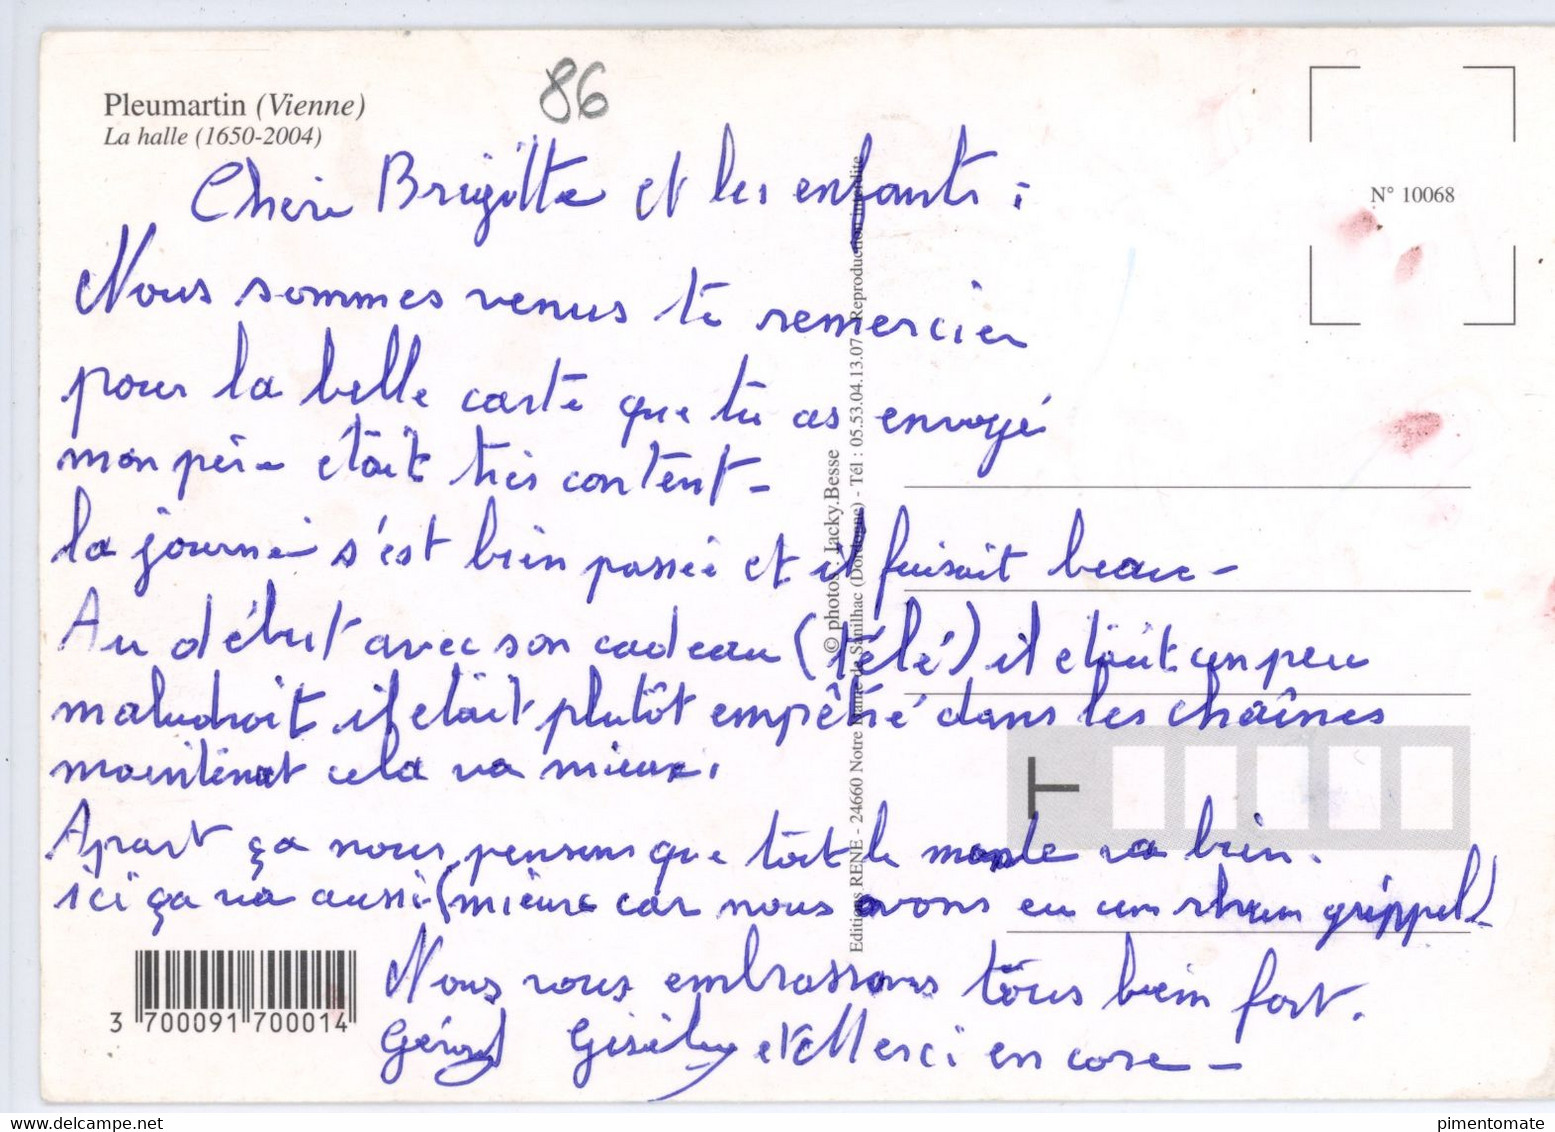 Pleumartin (Vienne)
La halle (1650-2004)
86
N° 10068
Chère Brigitte et les enfants :
Nous sommes venus te remercier
pour la belle carte que tu as envoyé
mon père était très content -
la journée s'est bien passée et il faisait beau -
Au début avec son cadeau (télé) il était un peu
maladroit il était plutôt empêtré dans les chaînes
maintenat cela va mieux.
Apart ça nous pensons que tout le monde va bien.
ici ça va aussi (mieux car nous avons eu un rhum grippel)
Nous vous embrassons tous bien fort.
Gérard Gisèle et Merci encore -
© photos : Jacky.Besse
Editions RENÉ - 24660 Notre Dame de Sanilhac (Dordogne) - Tél : 05.53.04.13.07 - Reproduction interdite
T
3 700091 700014
delcampe.net
pimentomate